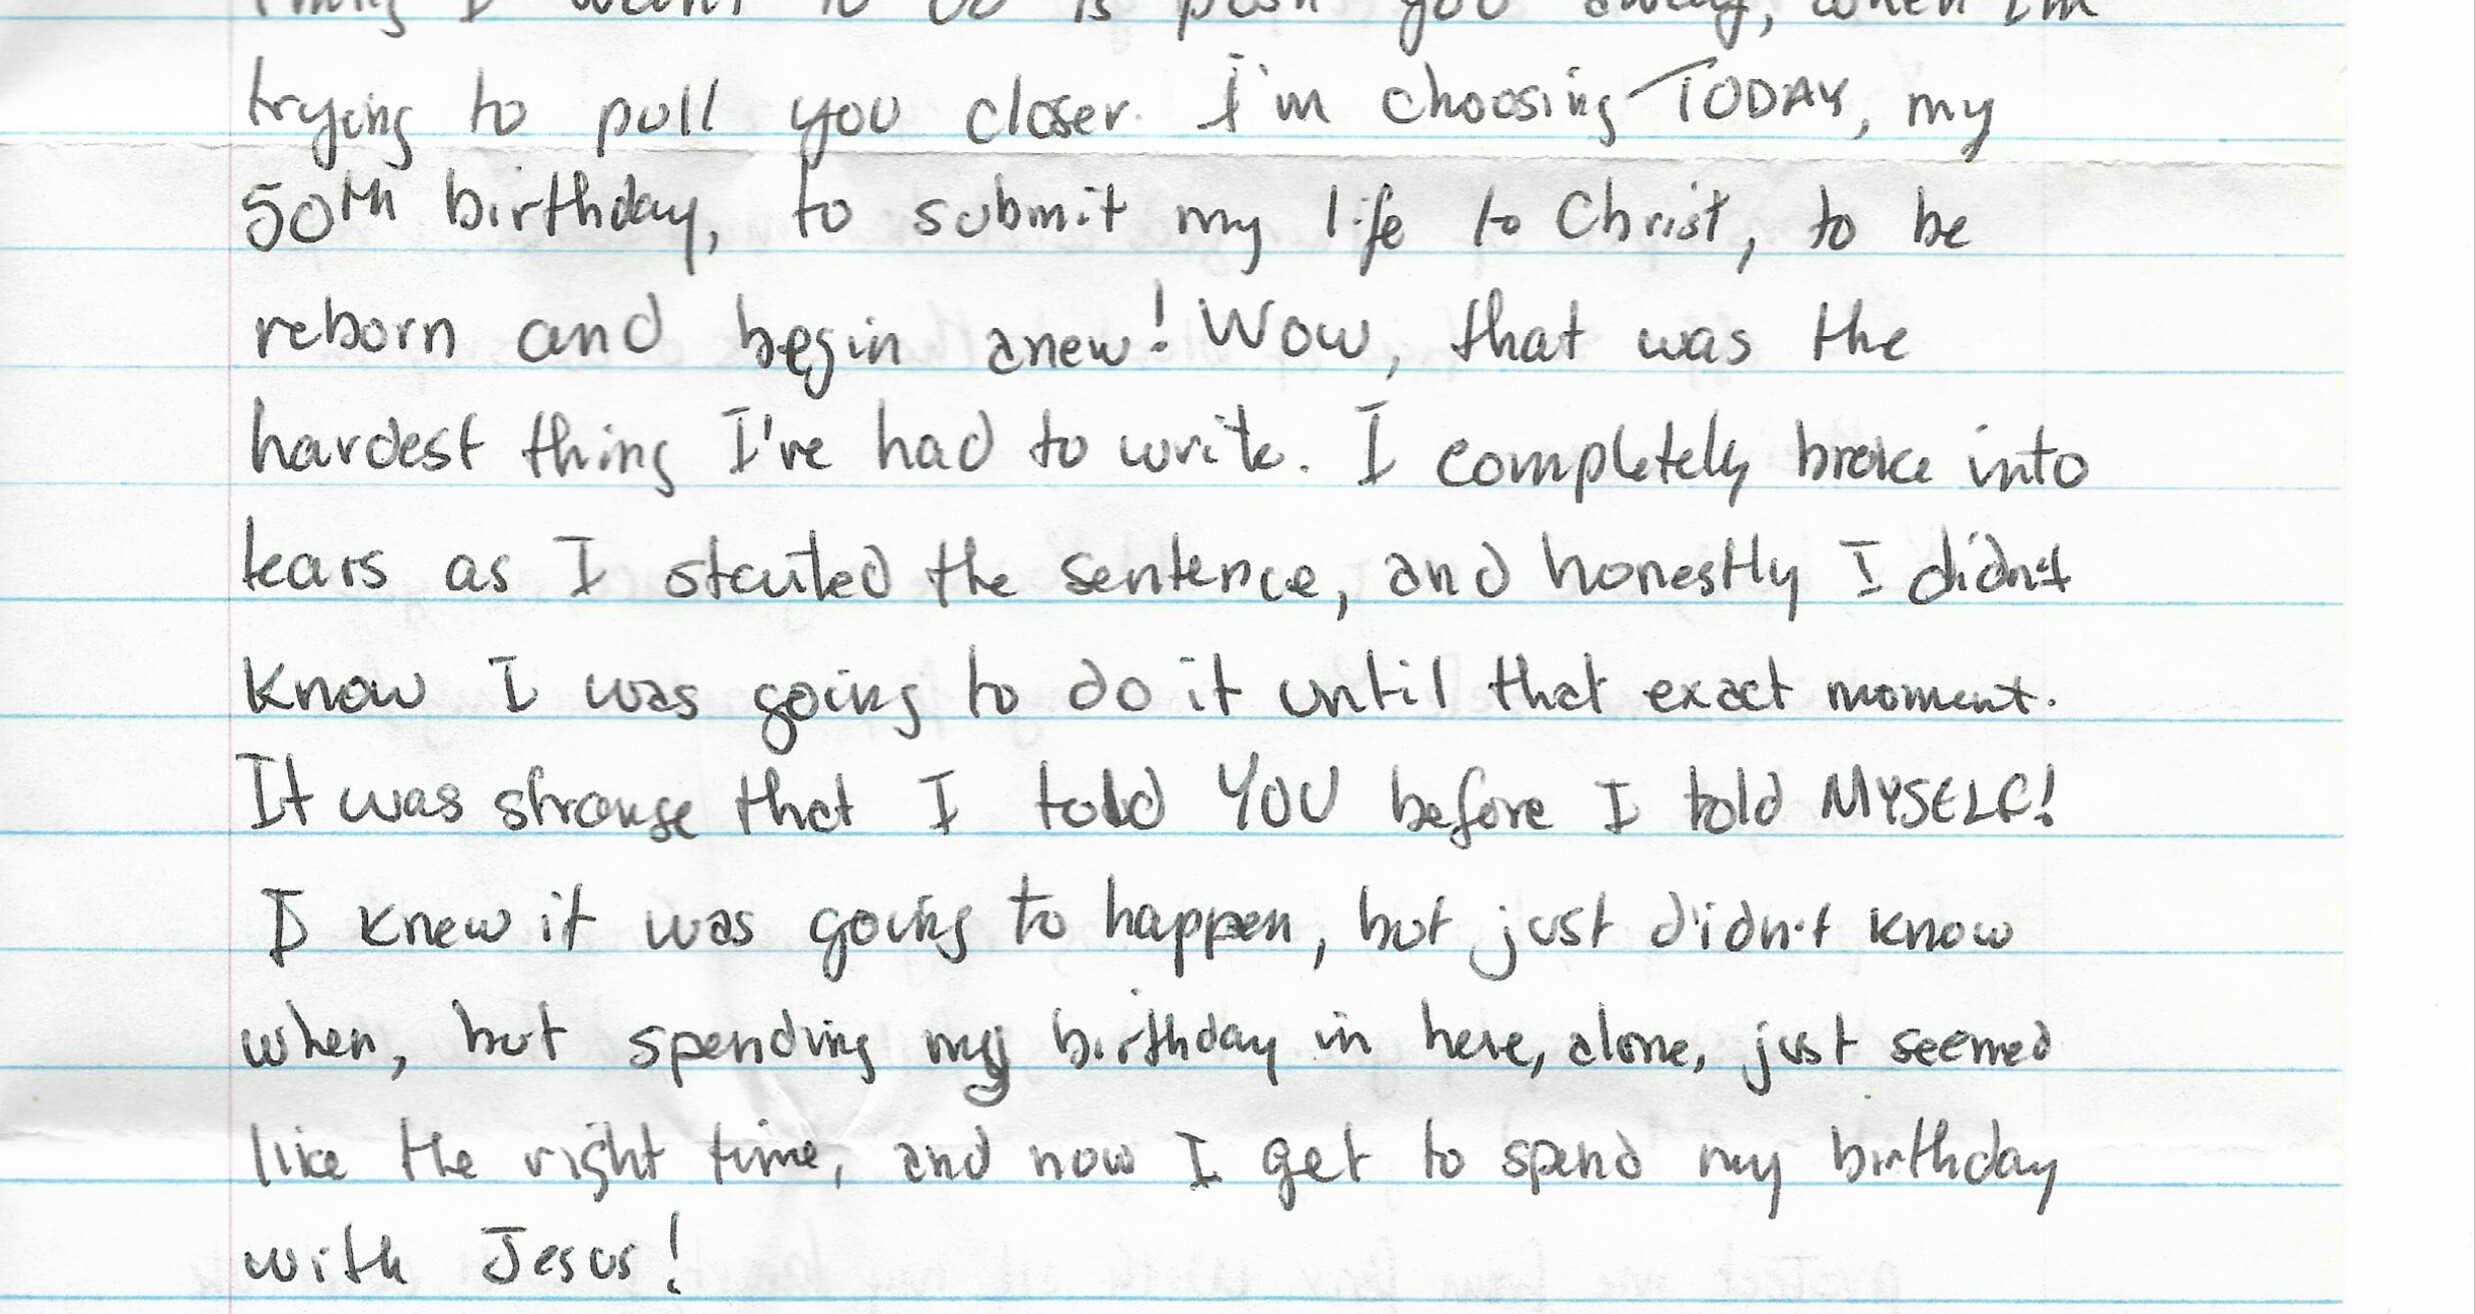 thing I want to do is push you away, when I'm
trying to pull you closer. I'm choosing TODAY, my
50th birthday, to submit my life to Christ, to be
reborn and begin anew! Wow, that was the
hardest thing I've had to write. I completely broke into
tears as I started the sentence, and honestly I didn't
know I was going to do it until that exact moment.
It was strange that I told YOU before I told MYSELF!
I knew it was going to happen, but just didn't know
when, but spending my birthday in here, alone, just seemed
like the right time, and now I get to spend my birthday
with Jesus!